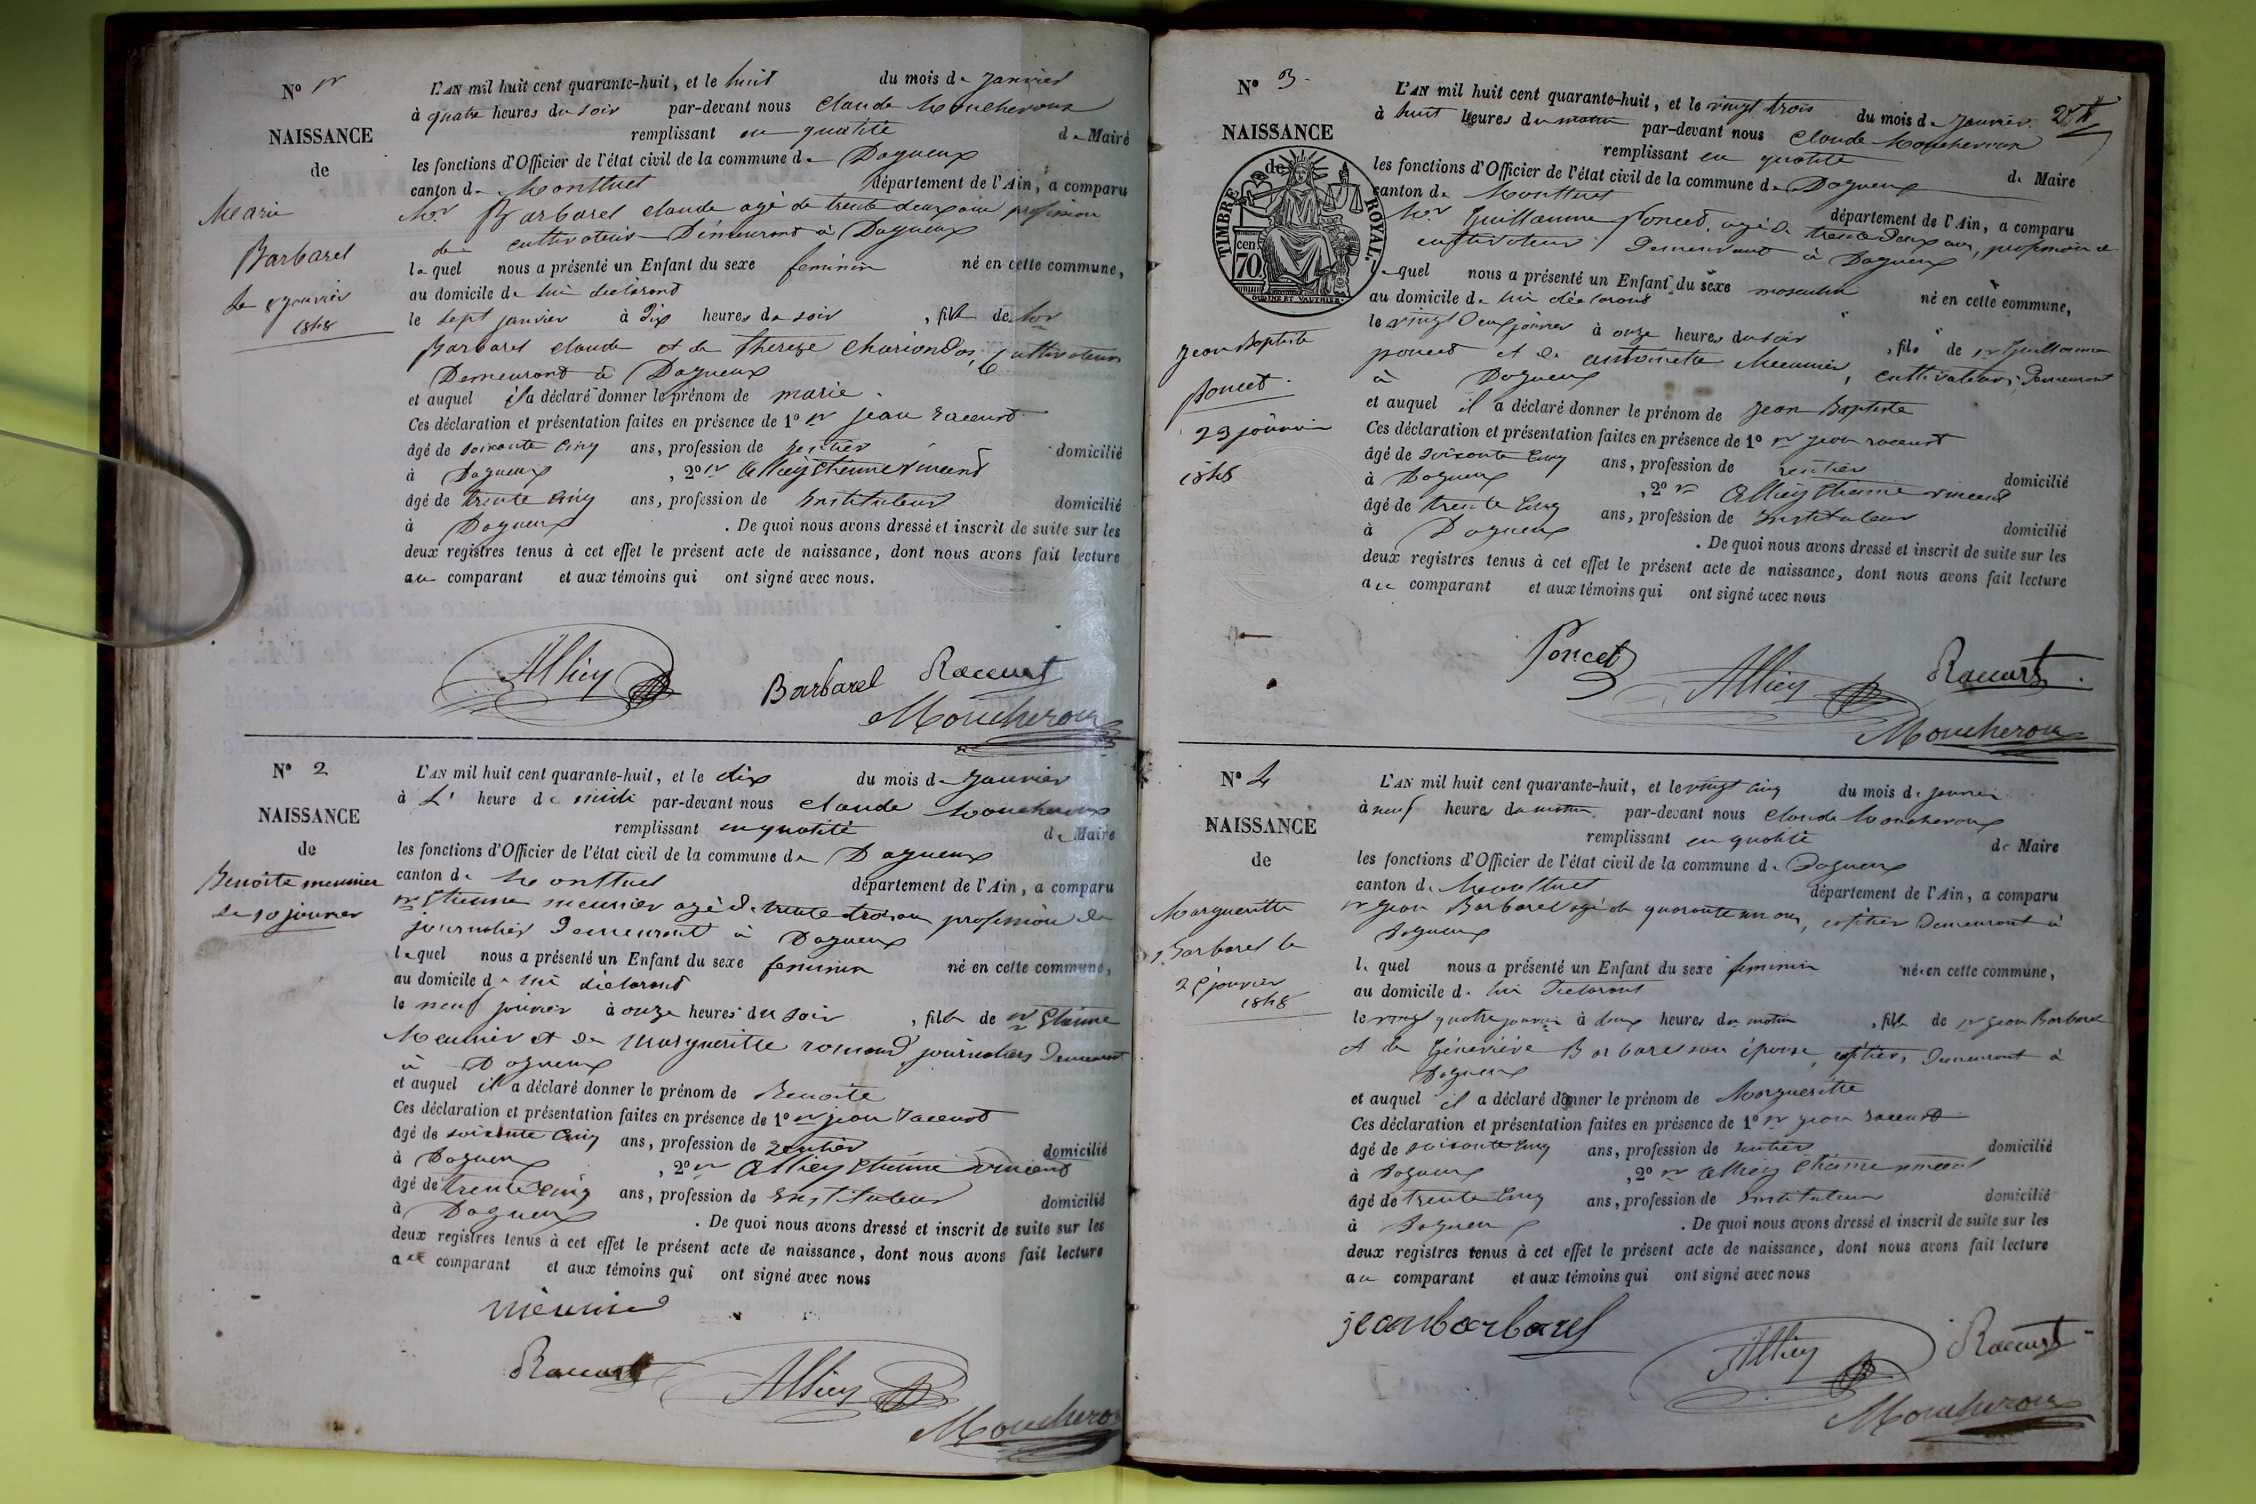 N° 1er
NAISSANCE
de
Marie
Barbarel
le 8 janvier
1848
L'AN mil huit cent quarante-huit, et le huit du mois de janvier
à quatre heures du soir par-devant nous Claude Moucheroux
remplissant en qualité de Maire
les fonctions d'Officier de l'état civil de la commune de Dagneux
canton de Montluel département de l'Ain, a comparu
Mr Barbarel claude agé de trente deux ans profession
de cultivateur Demeurant à Dagneux
lequel nous a présenté un Enfant du sexe feminin né en cette commune,
au domicile de lui déclarant
le sept janvier à dix heures du soir, fille de Mr
Barbarel claude et de Thereze cultivateurs
Demeurant à Dagneux
et auquel il a déclaré donner le prénom de marie.
Ces déclaration et présentation faites en présence de 1° mr jean racurt
âgé de soixante cinq ans, profession de rentier domicilié
à Dagneux, 2° mr Alliey Etienne vincent
âgé de trente cinq ans, profession de Instituteur domicilié
à Dagneux. De quoi nous avons dressé et inscrit de suite sur les
deux registres tenus à cet effet le présent acte de naissance, dont nous avons fait lecture
au comparant et aux témoins qui ont signé avec nous.
Alliey Barbarel Racurt
Moucheroux
N° 2
NAISSANCE
de
Benoite meunier
le 10 janvier
L'AN mil huit cent quarante-huit, et le dix du mois de janvier
à 1' heure de midi par-devant nous claude Moucheroux
remplissant en qualité de Maire
les fonctions d'Officier de l'état civil de la commune de Dagneux
canton de Montluel département de l'Ain, a comparu
mr Etienne meunier agé de trente trois ans profession de
journalier Demeurant à Dagneux
lequel nous a présenté un Enfant du sexe feminin né en cette commune,
au domicile de lui déclarant
le neuf janvier à onze heures du soir, fille de mr Etienne
Meunier et de Margueritte romand journaliers Demeurant
à Dagneux
et auquel il a déclaré donner le prénom de Benoite
Ces déclaration et présentation faites en présence de 1° mr jean racurt
âgé de soixante cinq ans, profession de rentier domicilié
à Dagneux, 2° mr Alliey Etienne vincent
âgé de trente cinq ans, profession de Instituteur domicilié
à Dagneux. De quoi nous avons dressé et inscrit de suite sur les
deux registres tenus à cet effet le présent acte de naissance, dont nous avons fait lecture
au comparant et aux témoins qui ont signé avec nous
meunier
Racurt Alliey
Moucheroux
N° 3.
NAISSANCE
de
TIMBRE ROYAL.
cen. 70
jean Baptiste
poncet.
23 janvier
1848
L'AN mil huit cent quarante-huit, et le vingt trois du mois de janvier
à huit heures du matin par-devant nous Claude Moucheroux
remplissant en qualité de Maire
les fonctions d'Officier de l'état civil de la commune de Dagneux
canton de Montluel département de l'Ain, a comparu
Mr Guillaume Poncet, agé de trente deux ans, profession de
cultivateur Demeurant à Dagneux
lequel nous a présenté un Enfant du sexe masculin né en cette commune,
au domicile de lui déclarant
le vingt deux janvier à onze heures du soir, fils de mr Guillaume
poncet et de antoinette Meunier, cultivateurs, Demeurant
à Dagneux
et auquel il a déclaré donner le prénom de jean Baptiste
Ces déclaration et présentation faites en présence de 1° mr jean racurt
âgé de soixante cinq ans, profession de rentier domicilié
à Dagneux, 2° mr Alliey Etienne vincent
âgé de trente cinq ans, profession de Instituteur domicilié
à Dagneux. De quoi nous avons dressé et inscrit de suite sur les
deux registres tenus à cet effet le présent acte de naissance, dont nous avons fait lecture
au comparant et aux témoins qui ont signé avec nous
Poncet Alliey Racurt.
Moucheroux
N° 4
NAISSANCE
de
Margueritte
Barbarel le
25 janvier
1848
L'AN mil huit cent quarante-huit, et le vingt cinq du mois de janvier
à neuf heures du matin par-devant nous Claude Moucheroux
remplissant en qualité de Maire
les fonctions d'Officier de l'état civil de la commune de Dagneux
canton de Montluel département de l'Ain, a comparu
mr jean Barbarel agé de quarante un ans, Demeurant à
Dagneux
lequel nous a présenté un Enfant du sexe feminin né en cette commune,
au domicile de lui Déclarant
le vingt quatre janvier à deux heures du matin, fille de mr jean Barbarel
et de Géneviève Barbarel son épouse, Demeurant à
Dagneux
et auquel il a déclaré donner le prénom de Margueritte
Ces déclaration et présentation faites en présence de 1° mr jean racurt
âgé de soixante cinq ans, profession de rentier domicilié
à Dagneux, 2° mr Alliey Etienne vincent
âgé de trente cinq ans, profession de Instituteur domicilié
à Dagneux. De quoi nous avons dressé et inscrit de suite sur les
deux registres tenus à cet effet le présent acte de naissance, dont nous avons fait lecture
au comparant et aux témoins qui ont signé avec nous
jean barbarel Alliey Racurt
Moucheroux